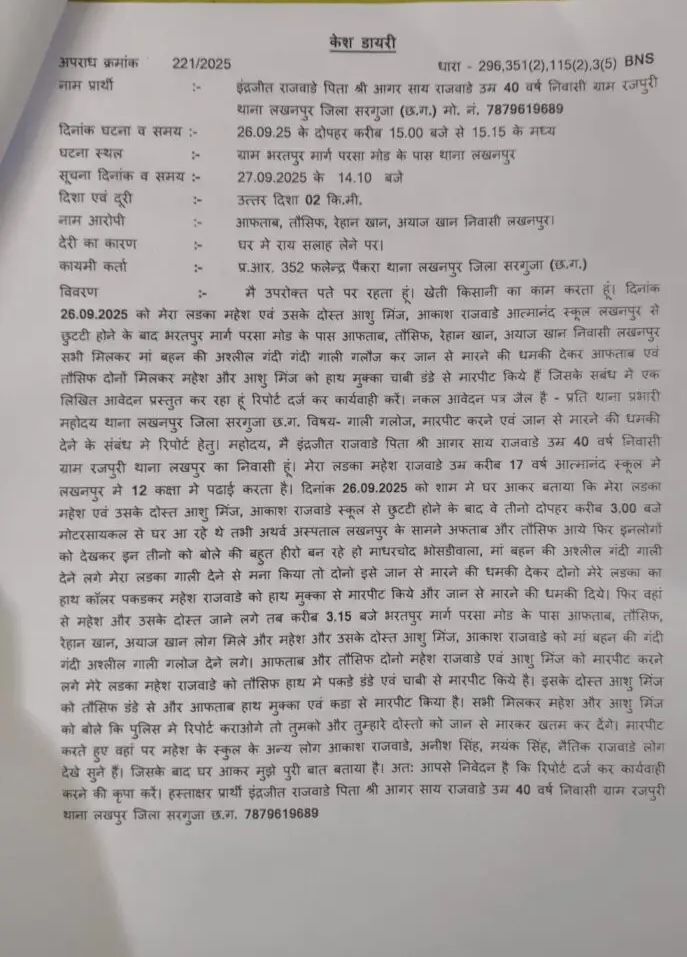 केश डायरी
अपराध क्रमांक 221/2025 धारा - 296,351(2),115(2),3(5) BNS
नाम प्रार्थी :- इंद्रजीत राजवाडे पिता श्री आगर साय राजवाडे उम्र 40 वर्ष निवासी ग्राम रजपुरी
थाना लखनपुर जिला सरगुजा (छ.ग.) मो. नं. 7879619689
दिनांक घटना व समय :- 26.09.25 के दोपहर करीब 15.00 बजे से 15.15 के मध्य
घटना स्थल :- ग्राम भरतपुर मार्ग परसा मोड के पास थाना लखनपुर
सूचना दिनांक व समय :- 27.09.2025 के 14.10 बजे
दिशा एवं दूरी :- उत्तर दिशा 02 कि.मी.
नाम आरोपी :- आफताब, तौसिफ, रेहान खान, अयाज खान निवासी लखनपुर।
देरी का कारण :- घर मे राय सलाह लेने पर।
कायमी कर्ता :- प्र.आर. 352 फलेन्द्र पैकरा थाना लखनपुर जिला सरगुजा (छ.ग.)
विवरण :- मै उपरोक्त पते पर रहता हूं। खेती किसानी का काम करता हूं। दिनांक
26.09.2025 को मेरा लडका महेश एवं उसके दोस्त आशु मिंज, आकाश राजवाडे आत्मानंद स्कूल लखनपुर से
छुटटी होने के बाद भरतपुर मार्ग परसा मोड के पास आफताब, तौसिफ, रेहान खान, अयाज खान निवासी लखनपुर
सभी मिलकर मां बहन की अश्लील गंदी गंदी गाली गलौज कर जान से मारने की धमकी देकर आफताब एवं
तौसिफ दोनों मिलकर महेश और आशु मिंज को हाथ मुक्का चाबी डंडे से मारपीट किये हैं जिसके सबंध मे एक
लिखित आवेदन प्रस्तुत कर रहा हूं रिपोर्ट दर्ज कर कार्यवाही करें। नकल आवेदन पत्र जैल है - प्रति थाना प्रभारी
महोदय थाना लखनपुर जिला सरगुजा छ.ग. विषय- गाली गलोज, मारपीट करने एवं जान से मारने की धमकी
देने के संबंध मे रिपोर्ट हेतु। महोदय, मै इंद्रजीत राजवाडे पिता श्री आगर साय राजवाडे उम्र 40 वर्ष निवासी
ग्राम रजपुरी थाना लखपुर का निवासी हूं। मेरा लडका महेश राजवाडे उम्र करीब 17 वर्ष आत्मानंद स्कूल मे
लखनपुर मे 12 कक्षा मे पढाई करता है। दिनांक 26.09.2025 को शाम मे घर आकर बताया कि मेरा लडका
महेश एवं उसके दोस्त आशु मिंज, आकाश राजवाडे स्कूल से छुटटी होने के बाद वे तीनो दोपहर करीब 3.00 बजे
मोटरसायकल से घर आ रहे थे तभी अथर्व अस्पताल लखनपुर के सामने अफताब और तौसिफ आये फिर इनलोगों
को देखकर इन तीनो को बोले की बहुत हीरो बन रहे हो माधरचोद भोसडीवाला, मां बहन की अश्लील गंदी गाली
देने लगे मेरा लडका गाली देने से मना किया तो दोनो इसे जान से मारने की धमकी देकर दोनो मेरे लडका का
हाथ कॉलर पकडकर महेश राजवाडे को हाथ मुक्का से मारपीट किये और जान से मारने की धमकी दिये। फिर वहां
से महेश और उसके दोस्त जाने लगे तब करीब 3.15 बजे भरतपुर मार्ग परसा मोड के पास आफताब, तौसिफ,
रेहान खान, अयाज खान लोग मिले और महेश और उसके दोस्त आशु मिंज, आकाश राजवाडे को मां बहन की गंदी
गंदी अश्लील गाली गलोज देने लगे। आफताब और तौसिफ दोनो महेश राजवाडे एवं आशु मिंज को मारपीट करने
लगे मेरे लडका महेश राजवाडे को तौसिफ हाथ मे पकडे डंडे एवं चाबी से मारपीट किये है। इसके दोस्त आशु मिंज
को तौसिफ डंडे से और आफताब हाथ मुक्का एवं कडा से मारपीट किया है। सभी मिलकर महेश और आशु मिंज
को बोले कि पुलिस मे रिपोर्ट कराओगे तो तुमको और तुम्हारे दोस्तो को जान से मारकर खतम कर देंगे। मारपीट
करते हुए वहां पर महेश के स्कूल के अन्य लोग आकाश राजवाडे, अनीश सिंह, मयंक सिंह, नैतिक राजवाडे लोग
देखे सुने हैं। जिसके बाद घर आकर मुझे पुरी बात बताया है। अतः आपसे निवेदन है कि रिपोर्ट दर्ज कर कार्यवाही
करने की कृपा करें। हस्ताक्षर प्रार्थी इंद्रजीत राजवाडे पिता श्री आगर साय राजवाडे उम्र 40 वर्ष निवासी ग्राम रजपुरी
थाना लखपुर जिला सरगुजा छ.ग. 7879619689